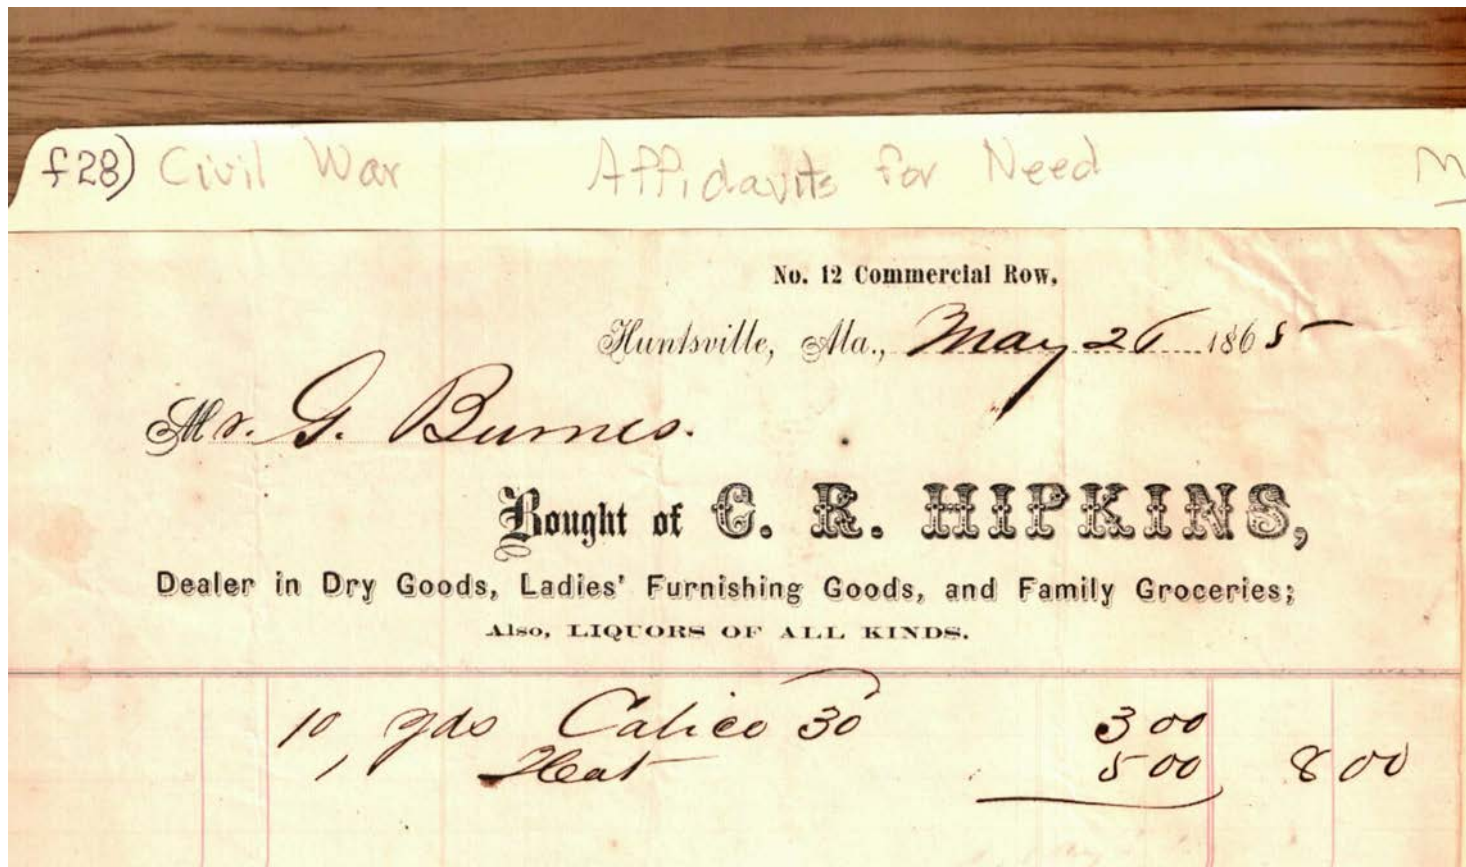 f28) Civil War Affidavits for Need M
No. 12 Commercial Row,
Huntsville, Ala., May 26 1865
Mr. G. Burnes.
Bought of C. R. HIPKINS,
Dealer in Dry Goods, Ladies' Furnishing Goods, and Family Groceries;
Also, LIQUORS OF ALL KINDS.
10 yds Calico 30 3 00
1 Heat 5 00 8 00